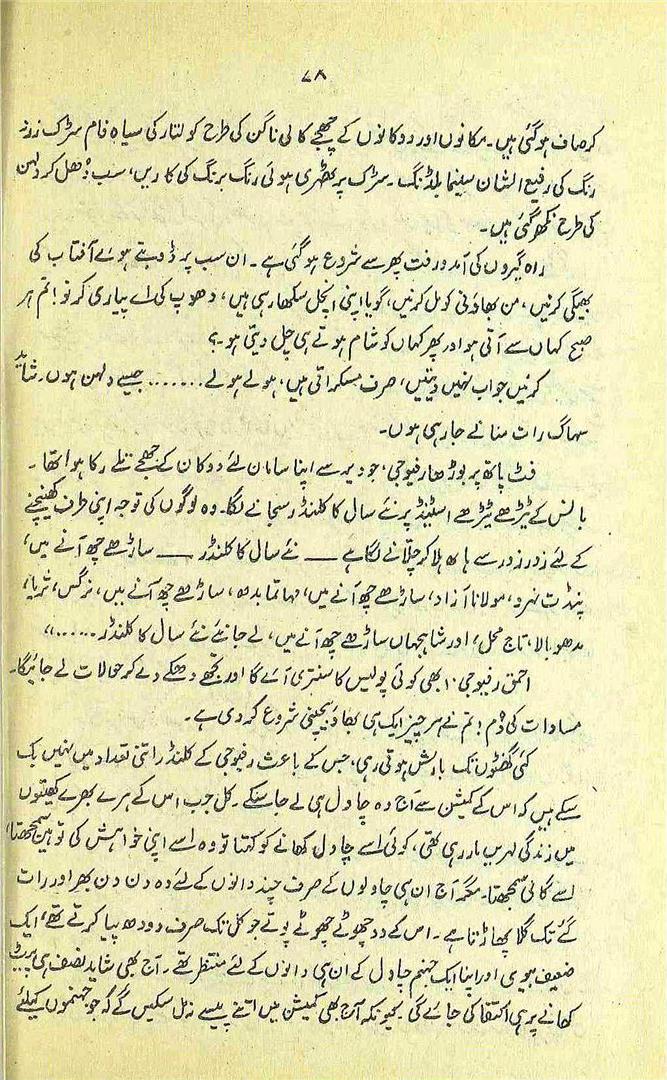 ۷۸
کر صاف ہو گئی ہیں۔ مکانوں اور دوکانوں کے چھجے کالی ناگن کی طرح کولتار کی سیاہ فام سڑک زرد
رنگ کی رفیع الشان سینما بلڈنگ۔ سڑک پر ٹھہری ہوئی رنگ برنگ کی کاریں، سب دُھل کر دلہن
کی طرح نکھر گئی ہیں۔
راہ گیروں کی آمد و رفت پھر سے شروع ہو گئی ہے۔ ان سب پر ڈوبتے ہوئے آفتاب کی
بھیگی کرنیں، من بھاؤنی کومل کرنیں، گویا اپنی آنچل سکھا رہی ہیں، دھوپ کی اے پیاری کرنو! تم ہر
صبح کہاں سے آتی ہو اور پھر کہاں کو شام ہوتے ہی چل دیتی ہو۔؟
کرنیں جواب نہیں دیتیں، صرف مسکراتی ہیں، ہولے ہولے ....... جیسے دلہن ہوں۔ شاید
سہاگ رات منانے جا رہی ہوں۔
فٹ پاتھ پر بوڑھا رفیوجی، جو دیر سے اپنا سامان لئے دوکان کے چھجے تلے رکا ہوا تھا۔
بانس کے ٹیڑھے ٹیڑھے اسٹینڈ پر نئے سال کا کلنڈر سجانے لگا۔ وہ لوگوں کی توجہ اپنی طرف کھینچنے
کے لئے زور زور سے ہاتھ ہلا کر چلّانے لگا ہے —— نئے سال کا کلنڈر —— ساڑھے چھ آنے میں،
پنڈت نہرو، مولانا آزاد، ساڑھے چھ آنے میں، مہاتما بدھ، ساڑھے چھ آنے میں، نرگس، ثریا،
مدھو بالا، تاج محل، اور شاہجہاں ساڑھے چھ آنے میں، لے جائیے نئے سال کا کلنڈر ......،،
احمق رفیوجی! ابھی کوئی پولیس کا سنتری آئے گا اور تجھے دھکے دے کر حوالات لے جائیگا۔
مساوات کی دُم! تم نے ہر چیز ایک ہی بھاؤ بیچنی شروع کر دی ہے۔
کئی گھنٹوں تک بارش ہوتی رہی، جس کے باعث رفیوجی کے کلنڈر اتنی تعداد میں نہیں بک
سکے ہیں کہ اس کے کمیشن سے آج وہ چاول ہی لے جا سکے۔ کل جب اس کے ہرے بھرے کھیتوں
میں زندگی لہریں مار رہی تھی، کوئی اسے چاول کھانے کو کہتا تو وہ اسے اپنی خواہش کی توہین سمجھتا،
اسے گالی سمجھتا۔ مگر آج ان ہی چاولوں کے صرف چند دانوں کے لئے وہ دن دن بھر اور رات
گئے تک گلا پھاڑتا ہے۔ اس کے دو چھوٹے چھوٹے پوتے جو کل تک صرف دودھ پیا کرتے تھے، ایک
ضعیف بیوی اور اپنا ایک جہنم چاول کے ان ہی دانوں کے لئے منتظر تھے۔ آج بھی شاید نصف ہی پیٹ
کھانے پر ہی اکتفا کی جائے گی۔ کیونکہ آج بھی کمیشن میں اتنے پیسے نہ مل سکیں گے کہ جو جہنموں کیلئے